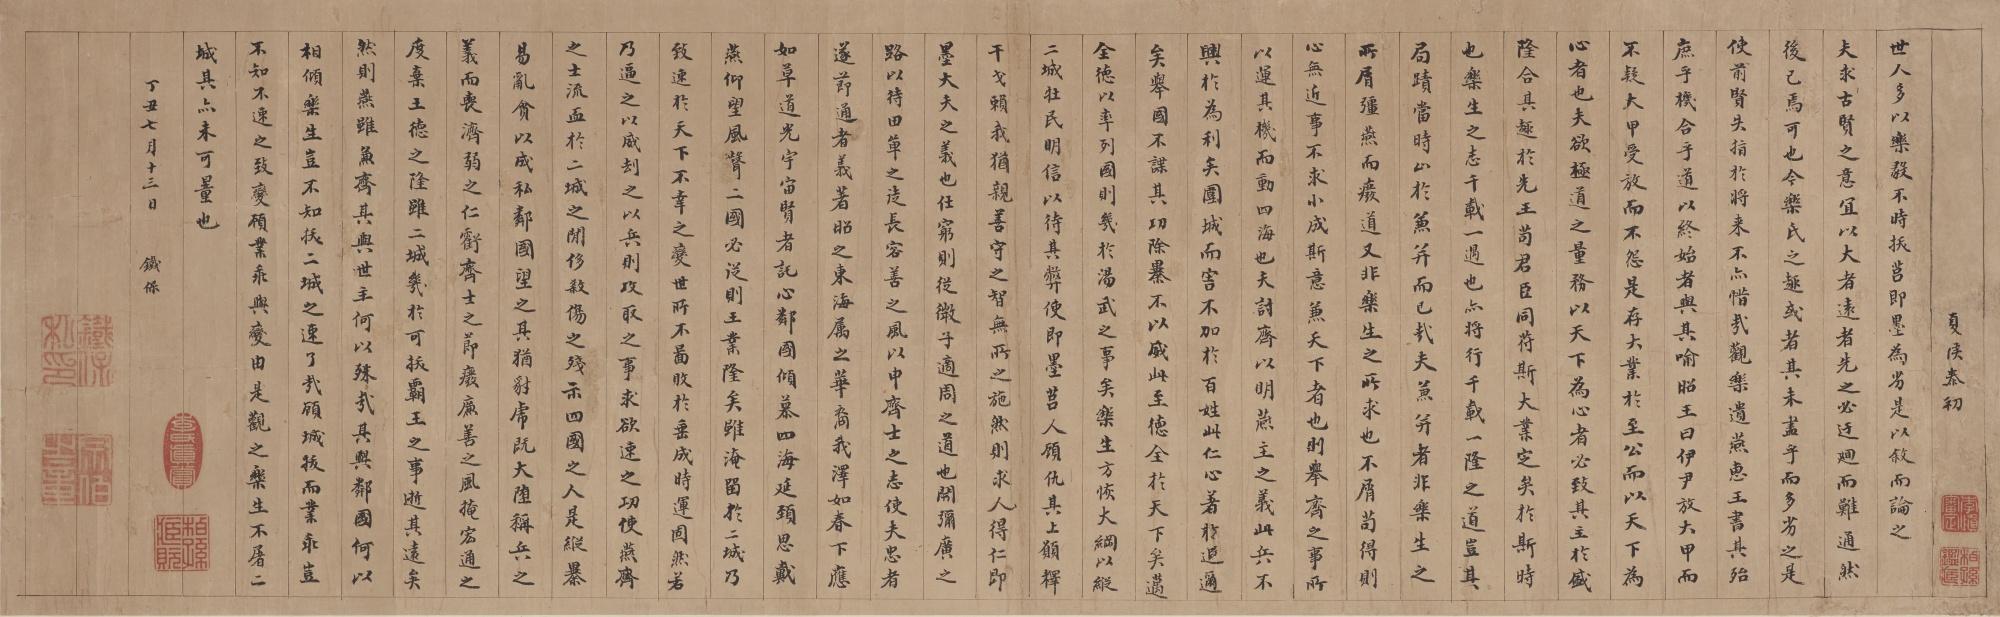 夏侯泰初
世人多以樂毅不時拔莒即墨為劣是以敘而論之
夫求古賢之意宜以大者遠者先之必迂迴而難通然
後已焉可也今樂氏之趣或者其未盡乎而多劣之是
使前賢失指於將来不亦惜哉觀樂遺燕惠王書其殆
庶乎機合乎道以終始者與其喻昭王曰伊尹放大甲而
不疑大甲受放而不怨是存大業於至公而以天下為
心者也夫欲極道之量務以天下為心者必致其主於盛
隆合其趣於先王苟君臣同符斯大業定矣於斯時
也樂生之志千載一遇也亦將行千載一隆之道豈其
局蹟當時止於兼并而已哉夫兼并者非樂生之
所屑彊燕而廢道又非樂生之所求也不屑苟得則
心無近事不求小成斯意兼天下者也則舉齊之事所
以運其機而動四海也夫討齊以明燕主之義此兵不
興於為利矣圍城而害不加於百姓此仁心著於遐邇
矣舉國不謀其功除暴不以威此至德全於天下矣邁
全德以率列國則幾於湯武之事矣樂生方恢大綱以縱
二城牧民明信以待其弊使即墨莒人顧仇其上願釋
干戈賴我猶親善守之智無所之施然則求人得仁即
墨大夫之義也仕窮則從微子適周之道也開彌廣之
路以待田單之徒長容善之風以申齊士之志使夫忠者
遂節通者義著昭之東海属之華裔我澤如春下應
如草道光宇宙賢者託心鄰國傾慕四海延頚思戴
燕仰望風聲二國必從則王業隆矣雖淹留於二城乃
致速於天下不幸之變世所不圖敗於垂成時運固然若
乃逼之以威刧之以兵則攻取之事求欲速之功使燕齊
之士流血於二城之閒侈殺傷之殘示四國之人是縱暴
易亂貪以成私鄰國望之其猶豺虎既大墮稱兵之
義而喪濟弱之仁虧齊士之節廢廉善之風掩宏通之
度棄王德之隆雖二城幾於可拔霸王之事逝其遠矣
然則燕雖兼齊其與世主何以殊哉其與鄰國何以
相傾樂生豈不知拔二城之速了哉顧城拔而業乖豈
不知不速之致變顧業乖與變由是觀之樂生不屠二
城其亦未可量也
丁丑七月十三日　鐵保